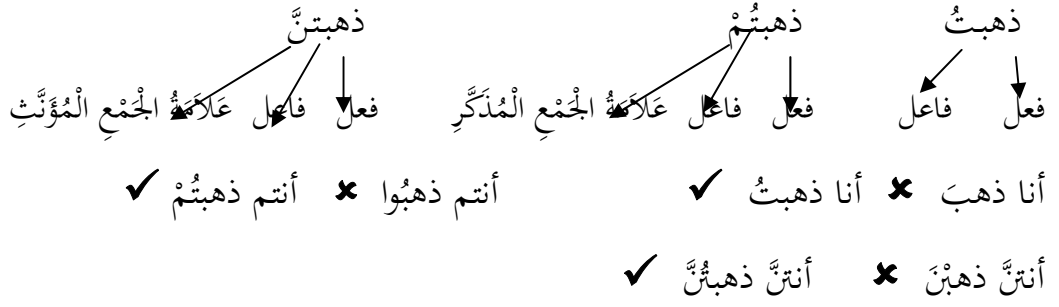 ذهبتُ ذهبتُمْ ذهبتنَّ
فعل فاعل فعل فاعل عَلاَمَةُ الْجَمْعِ الْمُذَكَّرِ فعل فاعل عَلاَمَةُ الْجَمْعِ الْمُؤَنَّثِ
أنا ذهبَ ✘ أنا ذهبتُ ✔ أنتم ذهبُوا ✘ أنتم ذهبتُمْ ✔
أنتنَّ ذهبْنَ ✘ أنتنَّ ذهبتُنَّ ✔